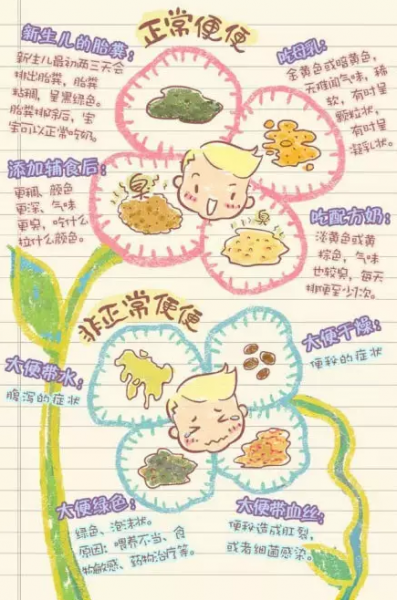 正常便便
新生儿的胎粪:
新生儿最初两三天会
排出胎粪，胎粪
粘稠，呈黑绿色。
胎粪排除后，宝
宝可以正常吃奶。
吃母乳:
金黄色或暗黄色，
无难闻气味，稀
软，有时呈
颗粒状，
有时呈
凝乳状。
添加辅食后:
更稠，颜色
更深，气味
更臭，吃什么
拉什么颜色。
臭
臭
吃配方奶:
淡黄色或黄
棕色，气味
也较臭，每天
排便至少1次。
非正常便便
大便带水:
腹泻的症状
大便干燥:
便秘的症状
大便绿色:
绿色、泡沫状。
原因：喂养不当、食
物敏感、药物治疗等。
大便带血丝:
便秘造成肛裂，
或者细菌感染。